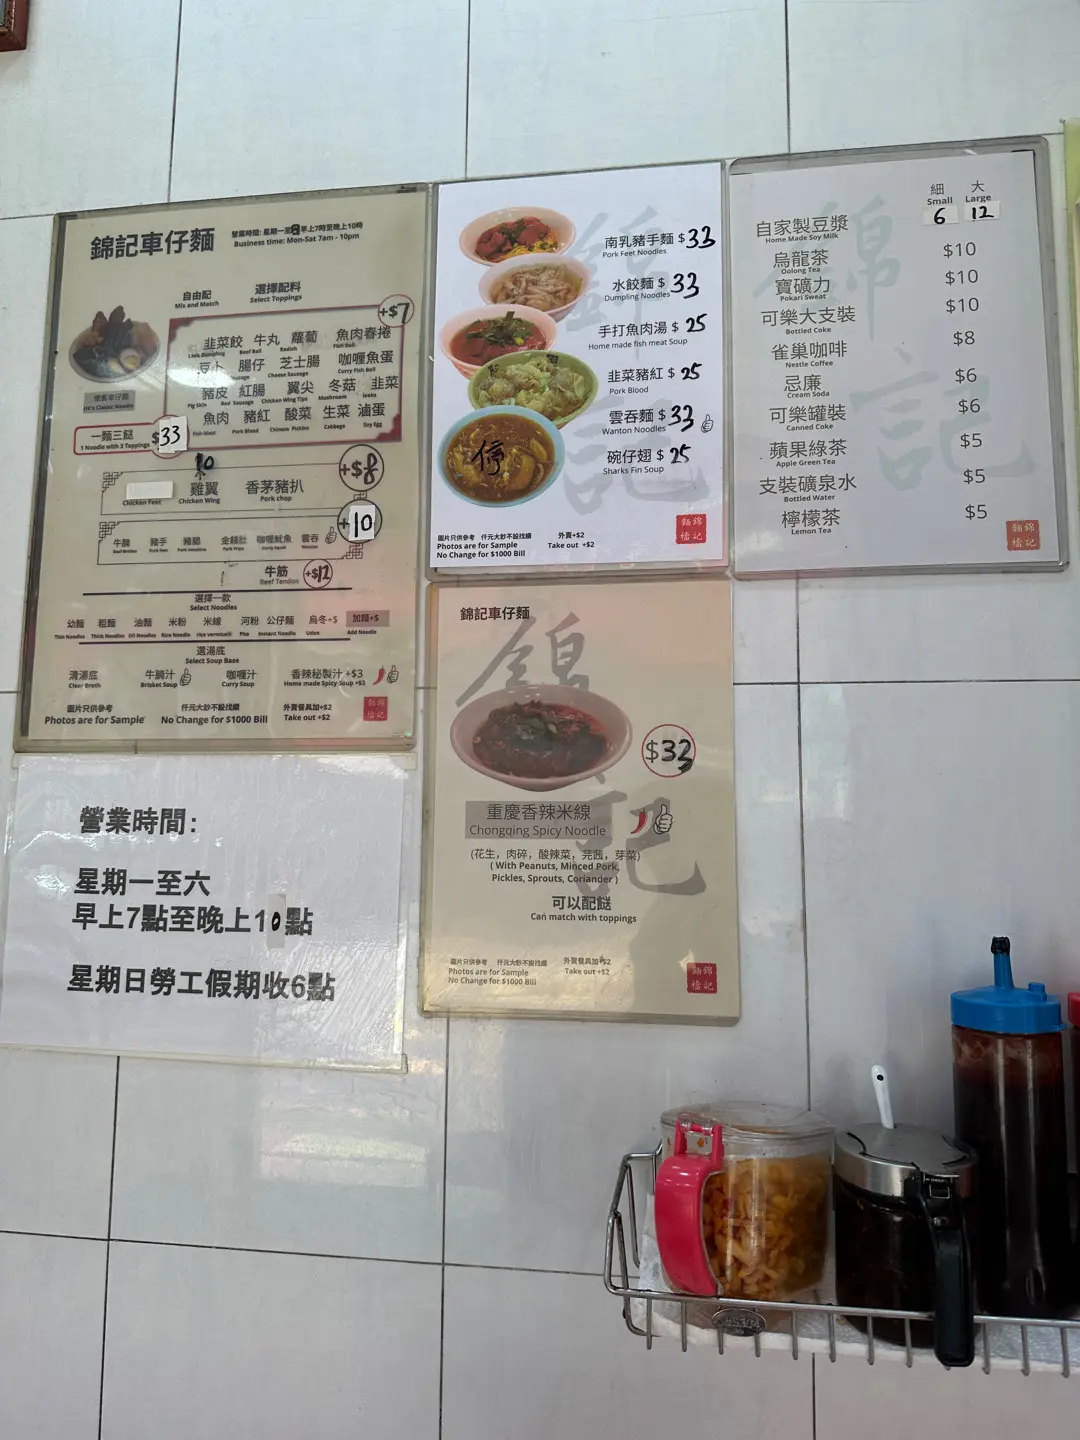 錦記車仔麵
營業時間: 星期一至 早上7時至晚上10時
Business time: Mon-Sat 7am - 10pm
自由配
Mix and Match
選擇配料
Select Toppings
+$7
韭菜餃 牛丸 蘿蔔 魚肉春捲
Leek Dumpling Beef Ball Radish Fish Roll
豆卜 腸仔 芝士腸 咖喱魚蛋
Sausage Cheese Sausage Curry Fish Ball
豬皮 紅腸 翼尖 冬菇 韭菜
Pig Skin Red Sausage Chicken Wing Tips Mushroom leeks
魚肉 豬紅 酸菜 生菜 滷蛋
Fish Meat Pork Blood Chinese Pickles Cabbage Soy Egg
一麵三餸 $33
1 Noodle with 3 Toppings
10
雞翼 香茅豬扒 +$8
Chicken Feet Chicken Wing Pork chop
牛腩 豬手 豬腸 金錢肚 咖喱魷魚 雲吞 +10
Beef Brisket Pork Feet Pork Intestine Pork Tripe Curry Squid Wanton
牛筋 +$12
Beef Tendon
選擇一款
Select Noodles
幼麵 粗麵 油麵 米粉 米線 河粉 公仔麵 烏冬+$ 加麵+$
Thin Noodles Thick Noodles Oil Noodles Rice Noodle rice vermicelli Pho Instant Noodle Udon Add Noodle
選湯底
Select Soup Base
清湯底 牛腩汁 咖喱汁 香辣秘製汁 +$3
Clear Broth Brisket Soup Curry Soup Home made Spicy Soup +$3
圖片只供參考 仟元大鈔不設找續 外賣餐具加+$2
Photos are for Sample No Change for $1000 Bill Take out +$2
錦記麵檔
南乳豬手麵 $33
Pork Feet Noodles
水餃麵 $33
Dumpling Noodles
手打魚肉湯 $25
Home made fish meat Soup
韭菜豬紅 $25
Pork Blood
雲吞麵 $33
Wanton Noodles
碗仔翅 $25
Sharks Fin Soup
停
圖片只供參考 仟元大鈔不設找續 外賣+$2
Photos are for Sample Take out +$2
No Change for $1000 Bill
錦記
錦記麵檔
細 大
Small Large
6 12
自家製豆漿
Home Made Soy Milk
烏龍茶 $10
Oolong Tea
寶礦力 $10
Pokari Sweat
可樂大支裝 $10
Bottled Coke
雀巢咖啡 $8
Nestle Coffee
忌廉 $6
Cream Soda
可樂罐裝 $6
Canned Coke
蘋果綠茶 $5
Apple Green Tea
支裝礦泉水 $5
Bottled Water
檸檬茶 $5
Lemon Tea
錦記
錦記麵檔
營業時間:
星期一至六
早上7點至晚上10點
星期日勞工假期收6點
錦記車仔麵
錦記
$33
重慶香辣米線
Chongqing Spicy Noodle
(花生，肉碎，酸辣菜，芫茜，芽菜)
( With Peanuts, Minced Pork,
Pickles, Sprouts, Coriander )
可以配餸
Can match with toppings
圖片只供參考 仟元大鈔不設找續 外賣餐具加+$2
Photos are for Sample Take out +$2
No Change for $1000 Bill
錦記麵檔